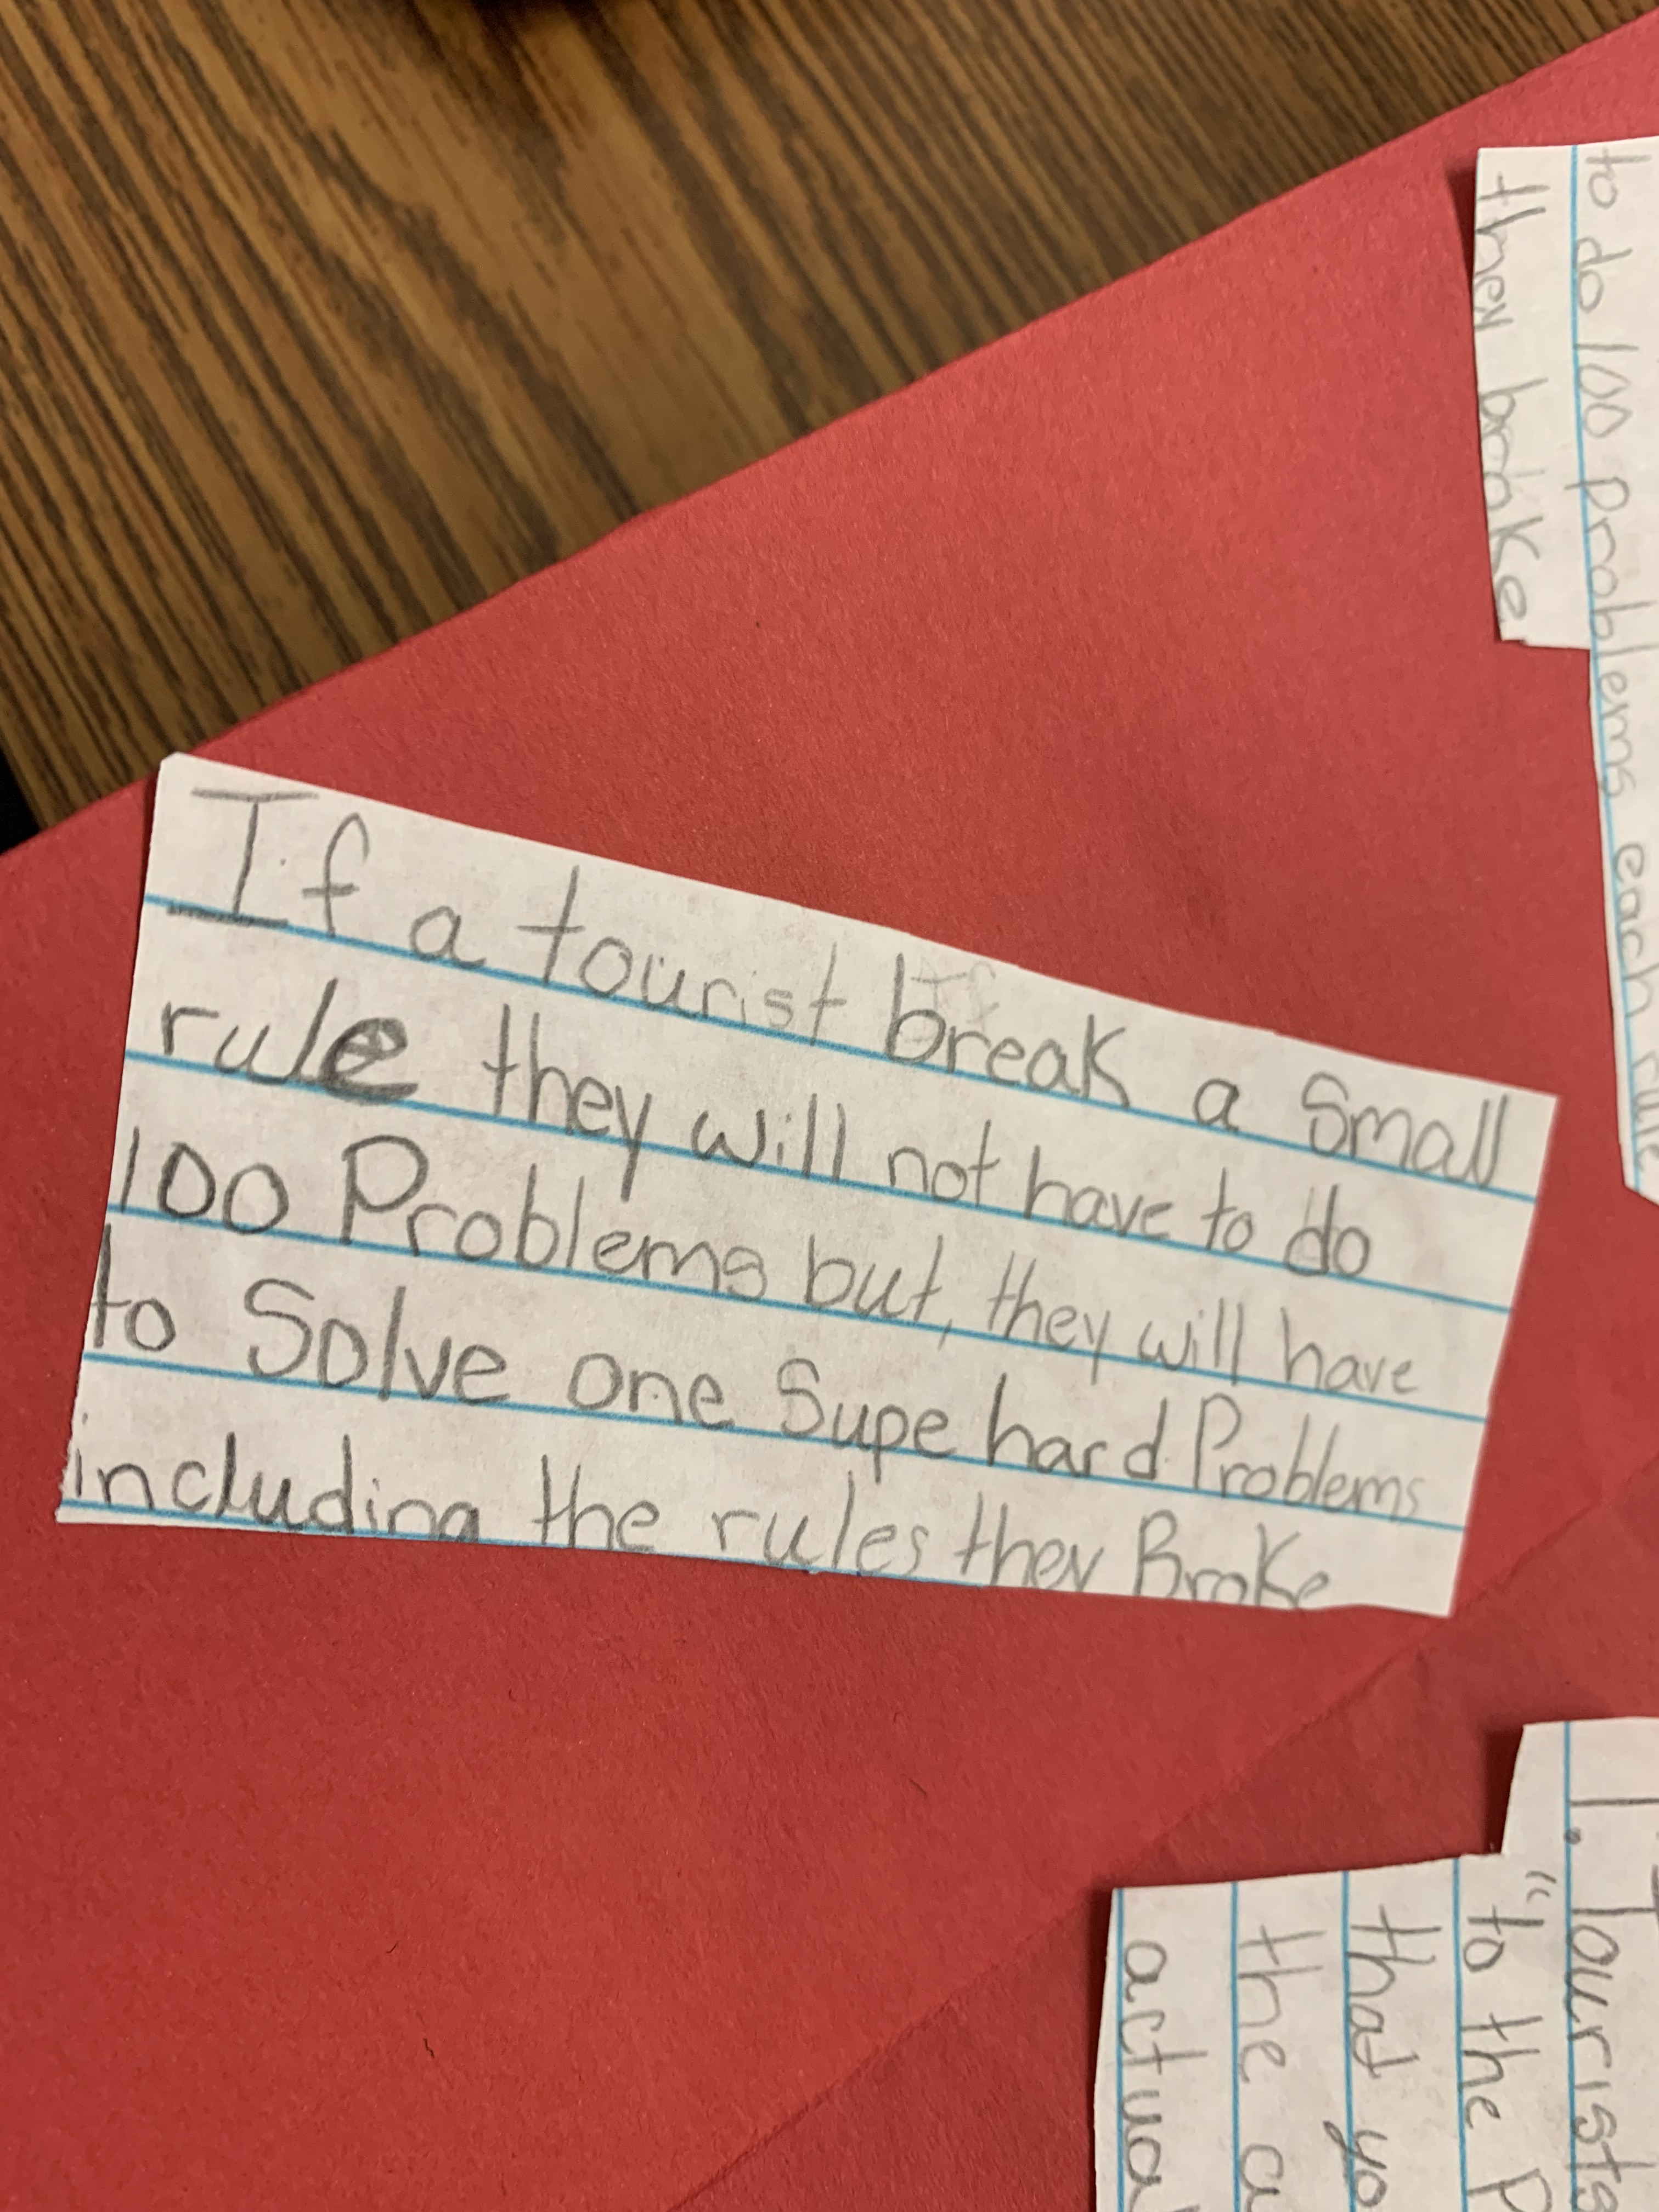 If a tourist break a small
rule they will not have to do
100 Problems but, they will have
to Solve one Supe hard Problems
including the rules they Broke
to do 100 problems each rule
they broke
1. Tourists
"to the
that yo
the a
actual